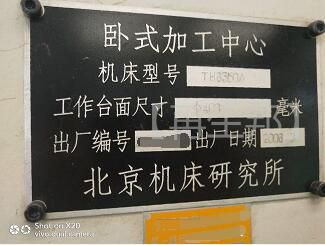 卧式加工中心
机床型号 TH6350A
工作台面尺寸 毫米
出厂编号 出厂日期 2008
北京机床研究所
SHOT ON X20
vivo dual camera